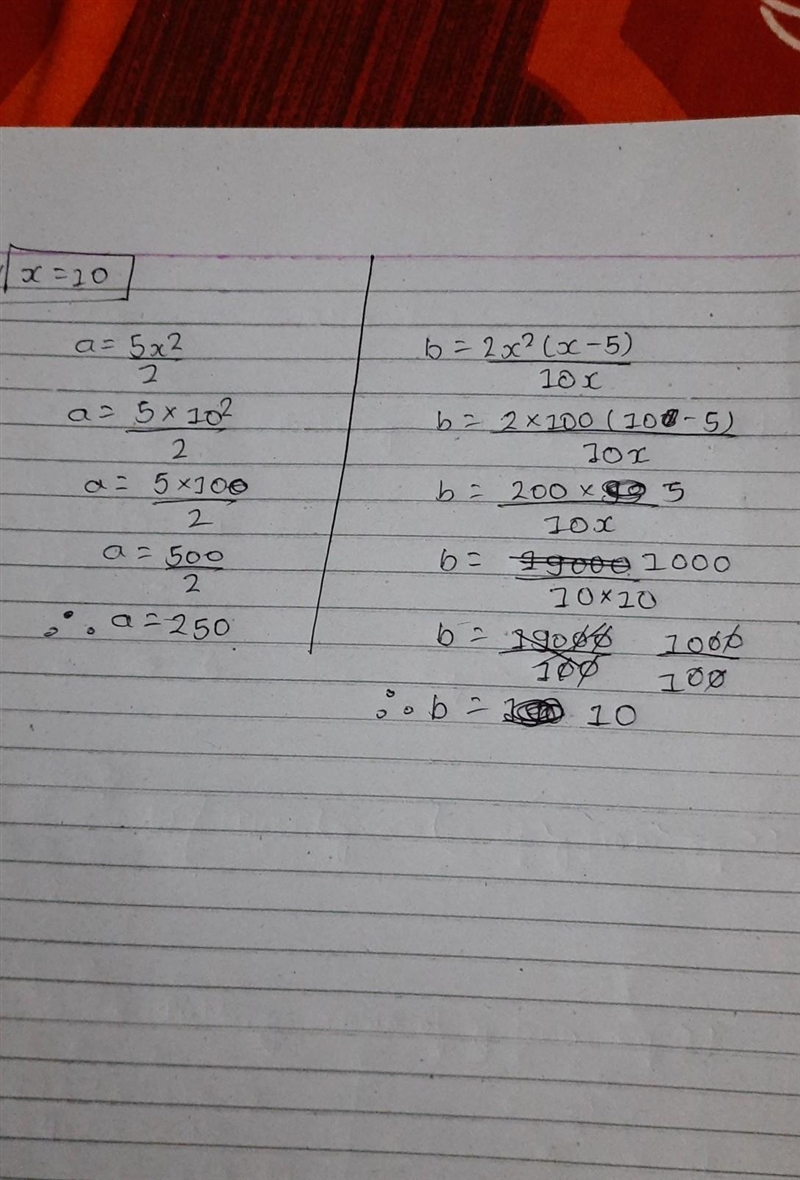 x = 10
a = 5x²/2
a = 5 × 10²/2
a = 5 × 100/2
a = 500/2
∴ a = 250
b = 2x² (x - 5)/10x
b = 2 × 100 (10 - 5)/10x
b = 200 × 5/10x
b = 19000 1000/10 × 10
b = 19000/100 1000/100
∴ b = 10